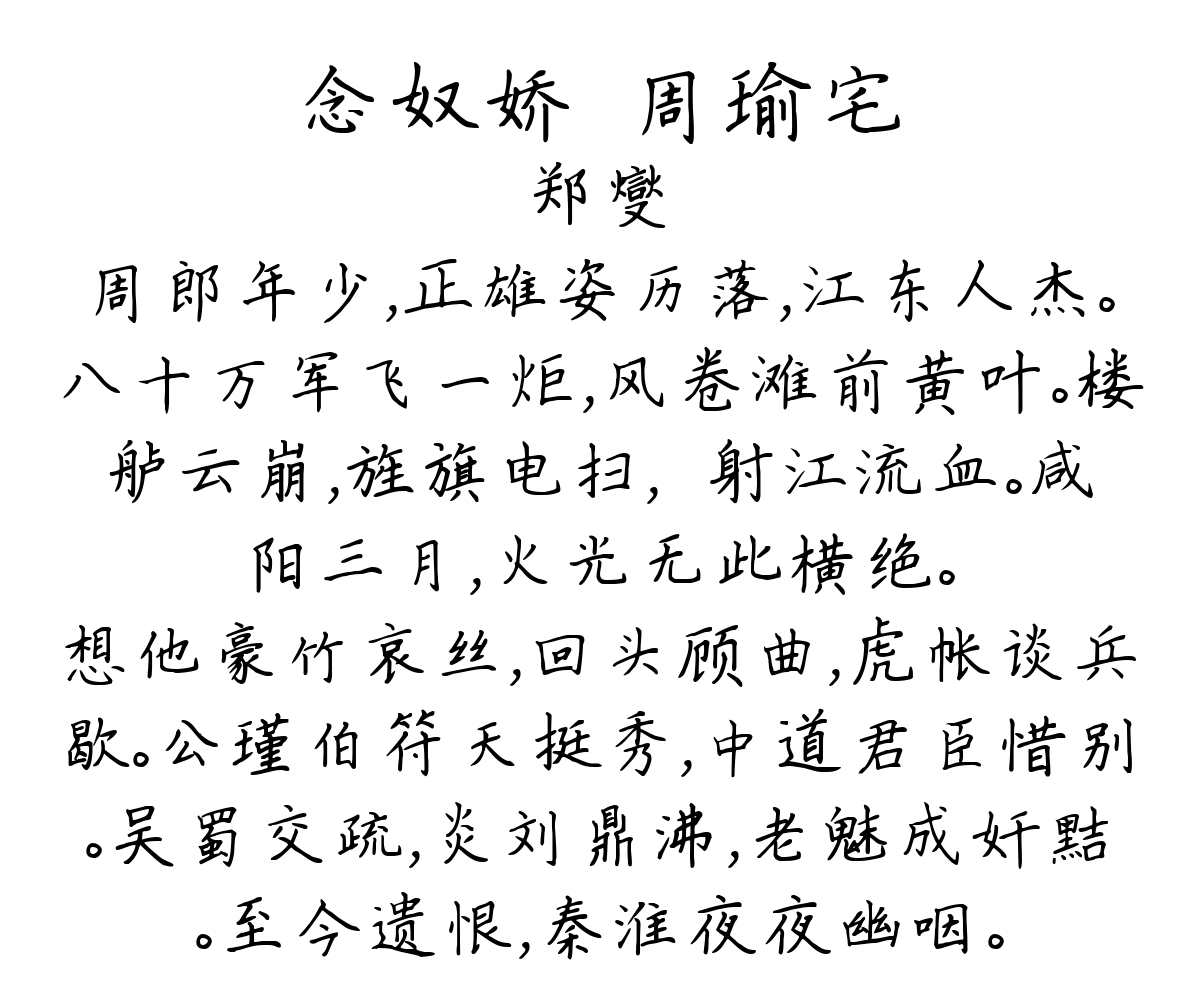 念奴娇 周瑜宅
郑燮
周郎年少,正雄姿历落,江东人杰。
八十万军飞一炬,风卷滩前黄叶。楼
舻云崩,旌旗电扫,射江流血。咸
阳三月,火光无此横绝。
想他豪竹哀丝,回头顾曲,虎帐谈兵
歇。公瑾伯符天挺秀,中道君臣惜别
。吴蜀交疏,炎刘鼎沸,老魅成奸黠
。至今遗恨,秦淮夜夜幽咽。